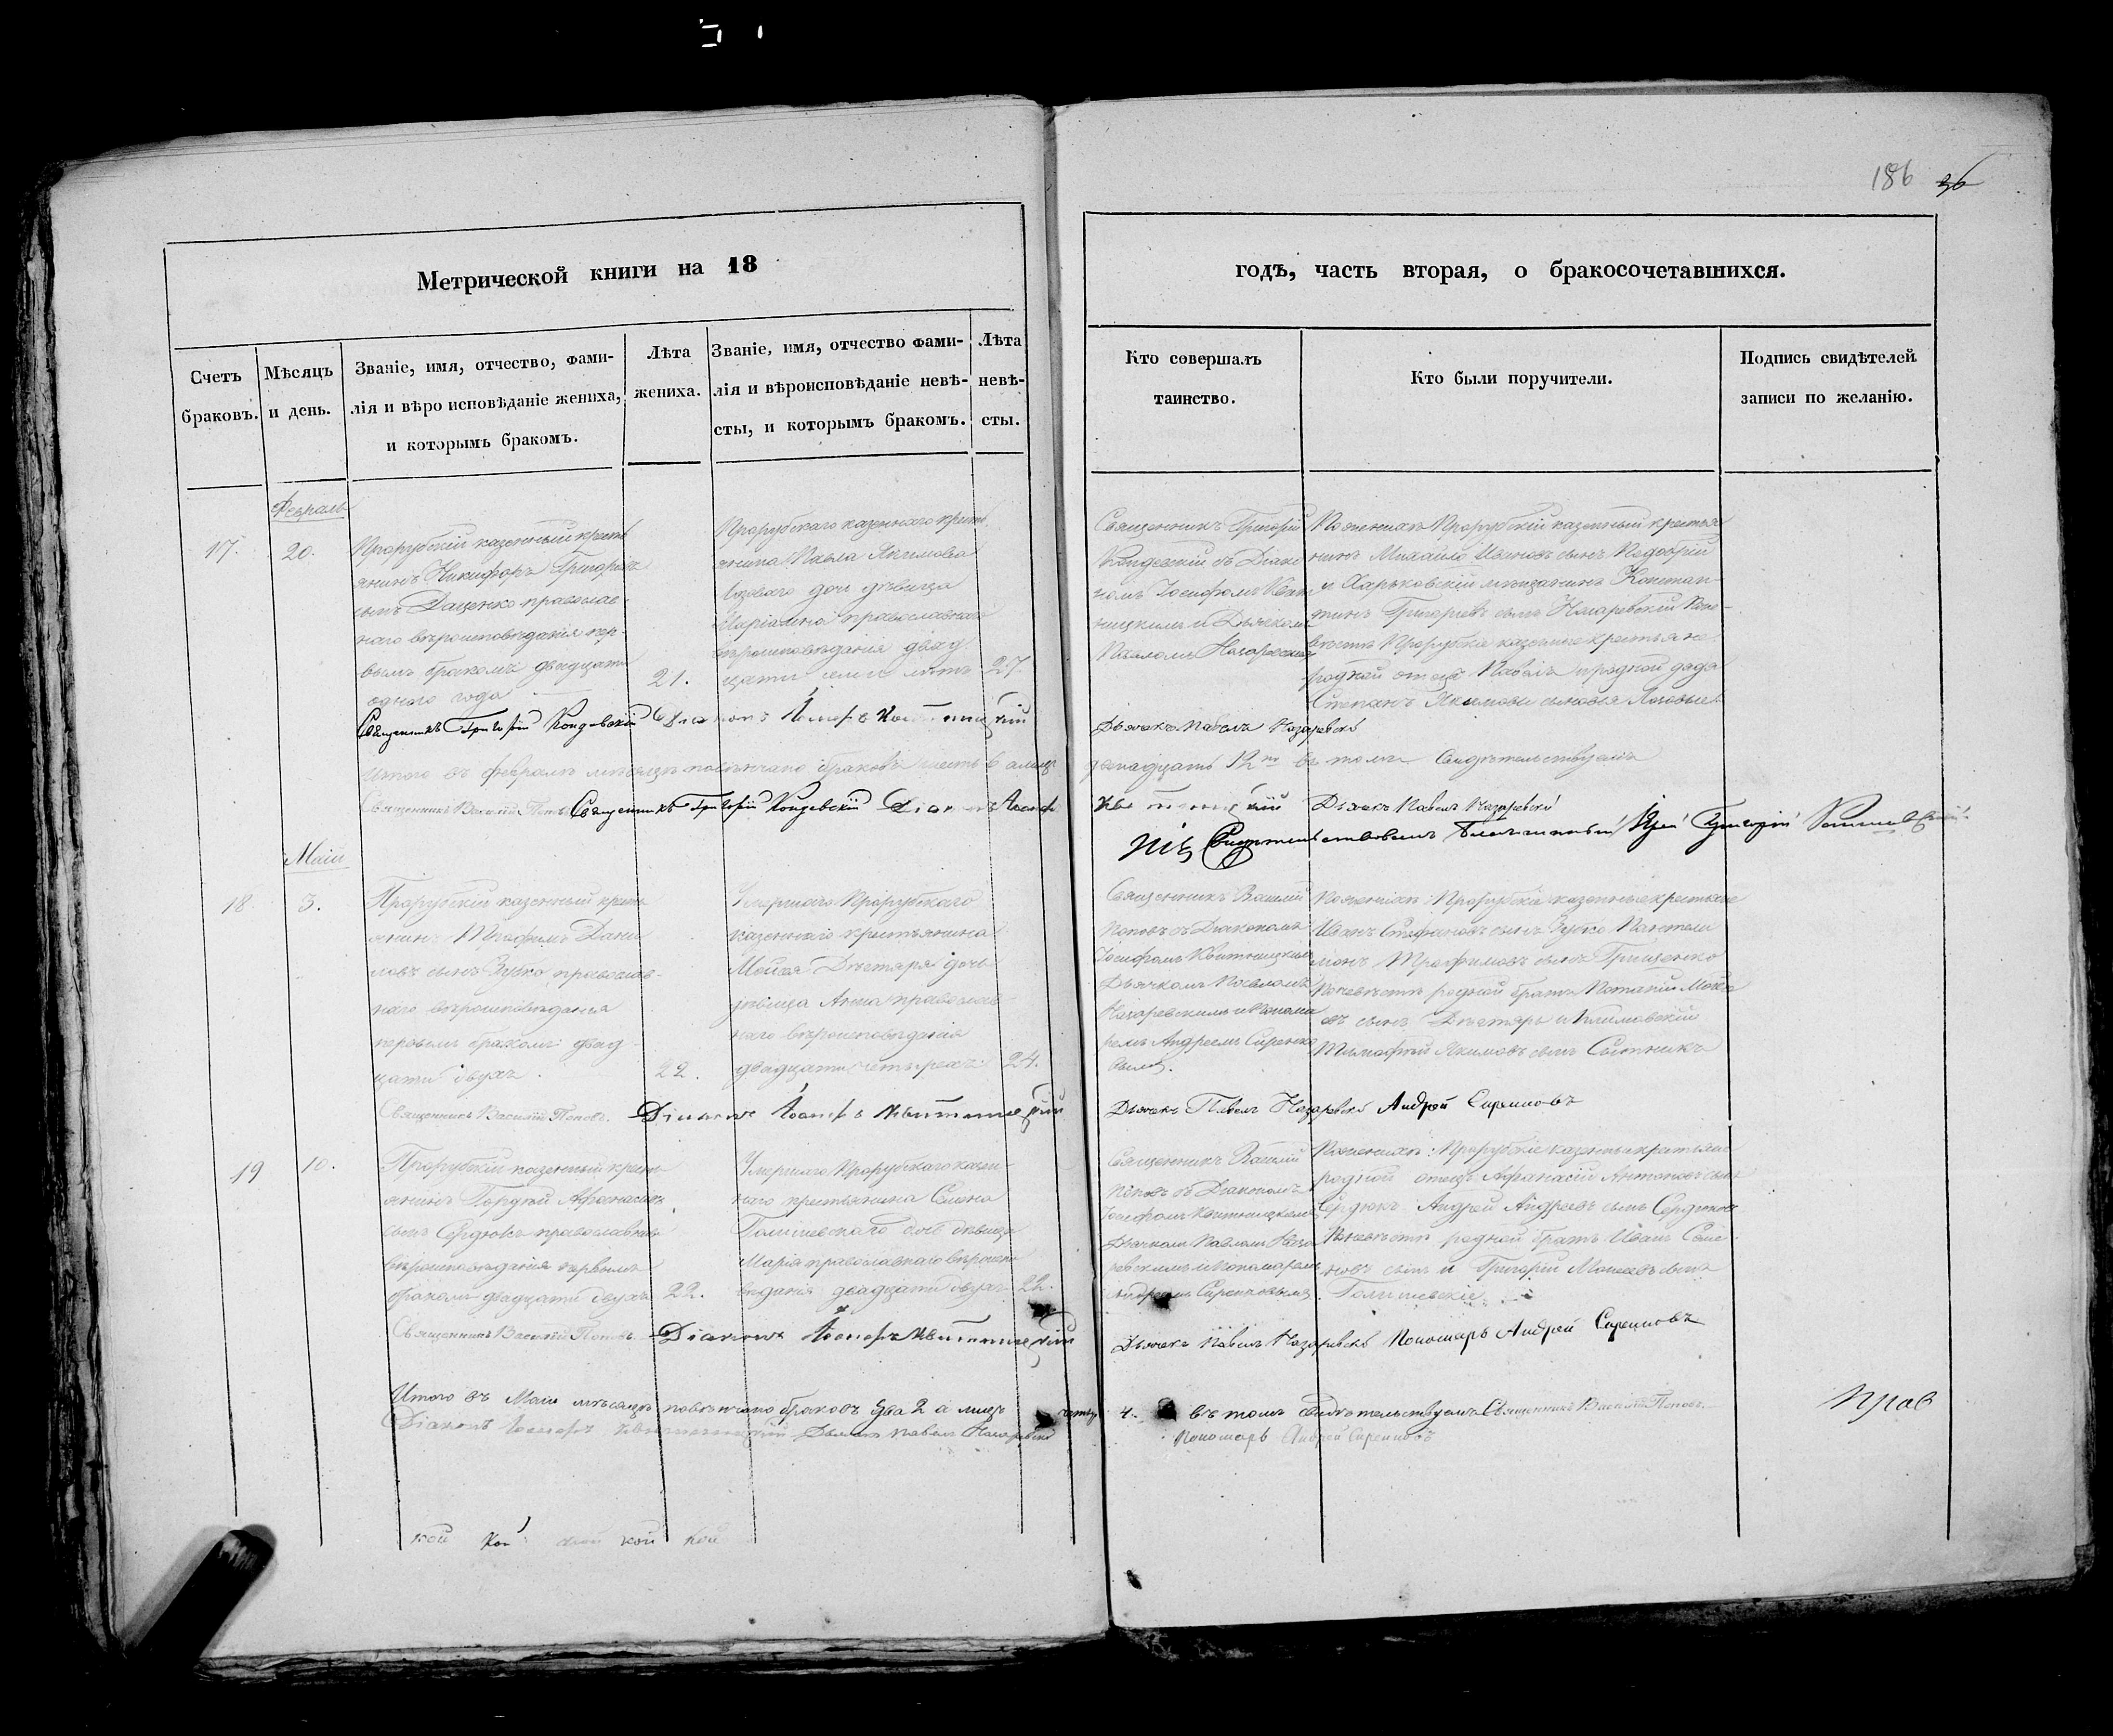 186 36
Метрической книги на 18
годъ, часть вторая, о бракосочетавшихся.
Счетъ браковъ.
Мѣсяцъ и день.
Званіе, имя, отчество, фами-
лія и вѣро исповѣданіе жениха,
и которымъ бракомъ.
Лѣта
жениха.
Званіе, имя, отчество фами-
лія и вѣроисповѣданіе невѣ-
сты, и которымъ бракомъ.
Лѣта
невѣ-
сты.
Кто совершалъ
таинство.
Кто были поручители.
Подпись свидѣтелей
записи по желанію.
Февраль
17.
20.
Прорубскій казенный кресть
янинъ Никифоръ Григорьевъ
сынъ Даценко православ-
наго вѣроисповѣданія пер-
вымъ бракомъ двадцати
одного года
21.
Прорубскаго казеннаго кресть
янина Павла Якимова
Лозоваго дочь дѣвица
Маріамна православнаго
вѣроисповѣданія двад
цати семи лѣтъ
27.
Священникъ Григорій
Кондевскій съ Діако
номъ Іосифомъ Квит
ницкимъ и Дьячкомъ
Павломъ Назаревскимъ
По женихѣ Прорубскій казенный крестья
нинъ Михайло Ивановъ сынъ
и Харьковскій мѣщанинъ Констан-
тинъ Григорьевъ сынъ Назаревскій По не-
вѣстѣ Прорубскіе казенные крестьяне
родной отецъ Павелъ и родной дядя
Степанъ Якимовы сыновья Лозовые
Священникъ Григорій Кондевскій Діаконъ Іосифъ Квитницкій
Дьячекъ Павелъ Назаревскій
Итого въ февралѣ мѣсяцѣ повѣнчано браковъ шесть 6 а лицъ
двенадцать 12ть въ томъ свидѣтельствуемъ
Священникъ Василій Поповъ Священникъ Григорій Кондевскій Діаконъ Іосифъ
Квитницкій Дьячекъ Павелъ Назаревскій
Свидѣтельствовалъ Благочинный Іерей Григорій
Маій
18.
3.
Прорубскій казенный кресть
янинъ Трофимъ Дани
ловъ сынъ Зубко православ-
наго вѣроисповѣданія
первымъ бракомъ двад
цати двухъ.
22.
Умершаго Прорубскаго
казеннаго крестьянина
Мойсея Дегтяря дочь
дѣвица Анна православ-
наго вѣроисповѣданія
двадцати четырехъ
24.
Священникъ Василій
Поповъ съ Діакономъ
Іосифомъ Квитницкимъ
Дьячкомъ Павломъ
Назаревскимъ и Понома
ремъ Андреемъ Сиренко
вымъ.
По женихѣ: Прорубскіе казенные крестьяне
Иванъ Стефановъ сынъ Зубко Пантелей
монъ Трофимовъ сынъ Грищенко
По невѣстѣ родной братъ Потапій Мойсе
евъ сынъ Дегтярь и Климовскій
Тимофей Якимовъ сынъ Сытникъ
Священникъ Василій Поповъ. Діаконъ Іосифъ Квитницкій
Дьячекъ Павелъ Назаревскій Андрей Сиренковъ
19
10.
Прорубскій казенный кресть
янинъ Гордѣй Афанасьевъ
сынъ Сердюкъ православнаго
вѣроисповѣданія первымъ
бракомъ двадцати двухъ
22.
Умершаго Прорубскаго казен-
наго крестьянина Семена
дочь дѣвица
Марія православнаго вѣроиспо
вѣданія двадцати двухъ
22.
Священникъ Василій
Поповъ съ Діакономъ
Іосифомъ Квитницкимъ
Дьячкомъ Павломъ Наза
ревскимъ и Пономаремъ
Андреемъ Сиренковымъ
По женихѣ: Прорубскіе казенные крестьяне
родной отецъ Афанасій Антоновъ сынъ
Сердюкъ Андрей Андреевъ сынъ Сердюковъ
По невѣстѣ родной братъ Иванъ Семе
новъ сынъ и Григорій Моисеевъ сынъ
Священникъ Василій Поповъ Діаконъ Іосифъ Квитницкій
Дьячекъ Павелъ Назаревскій Пономарь Андрей Сиренковъ
Итого въ Маіи мѣсяцѣ повѣнчано браковъ два 2 а лицъ четыр 4. въ томъ свидѣтельствуемъ Священникъ Василій Поповъ.
Діаконъ Іосифъ Квитницкій Дьячекъ Павелъ Назаревскій
Пономарь Андрей Сиренковъ
кой кой кой кой